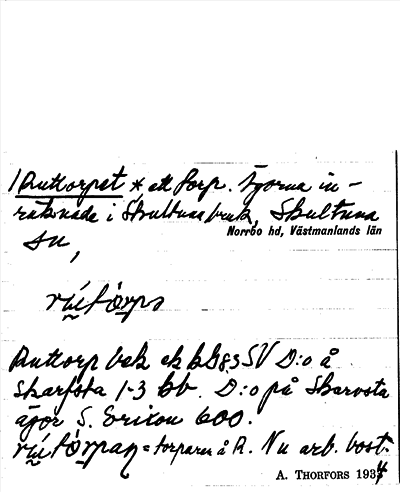 Ruttorpet * ett torp. Ägorna in-
räknade i Skultuna bruk, Skultuna
Norrbo hd, Västmanlands län
sn,
Ruttorp bek ek bl 83 SV D:o å
Skarfsta 1-3 bb. D:o på Skarvsta
ägor S. Ericon 600.
= torparen å R. Nu arb. bost.
A. THORFORS 1934